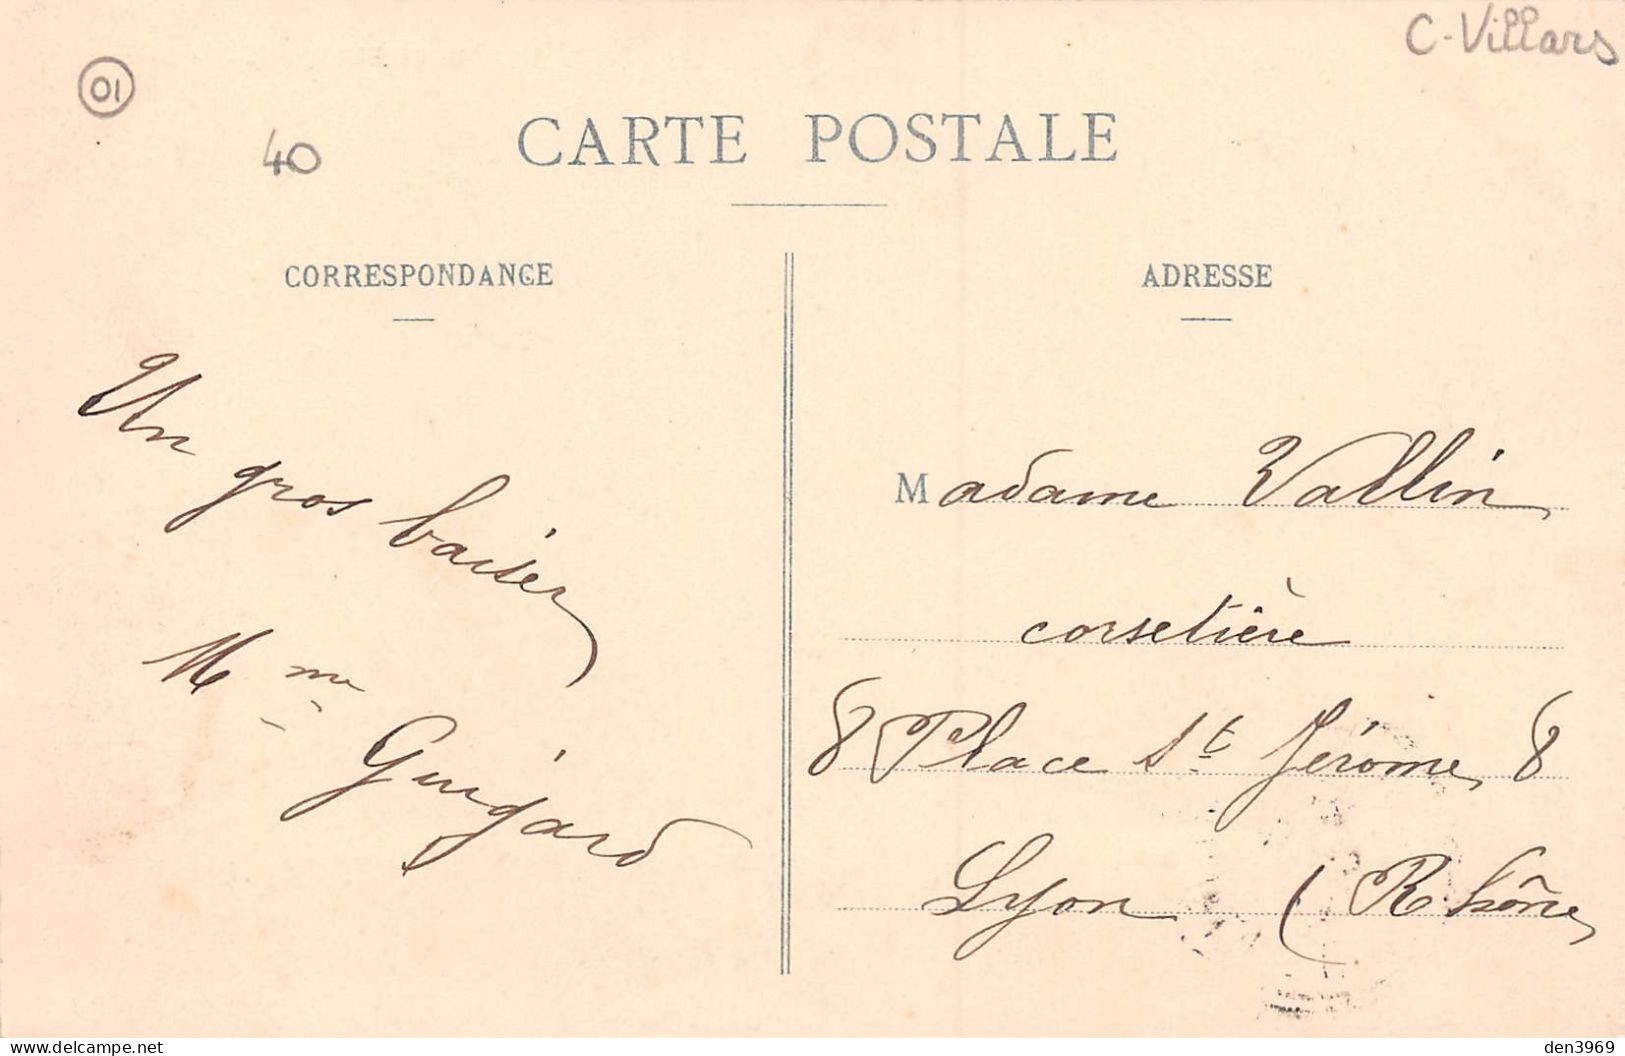 C-Villars
01
40
CARTE POSTALE
CORRESPONDANCE
Un gros baiser
Mme
Guigard
ADRESSE
Madame Vallin
corsetière
8 Place St Jérome, 8
Lyon (Rhône)
den3969
delcampe.net